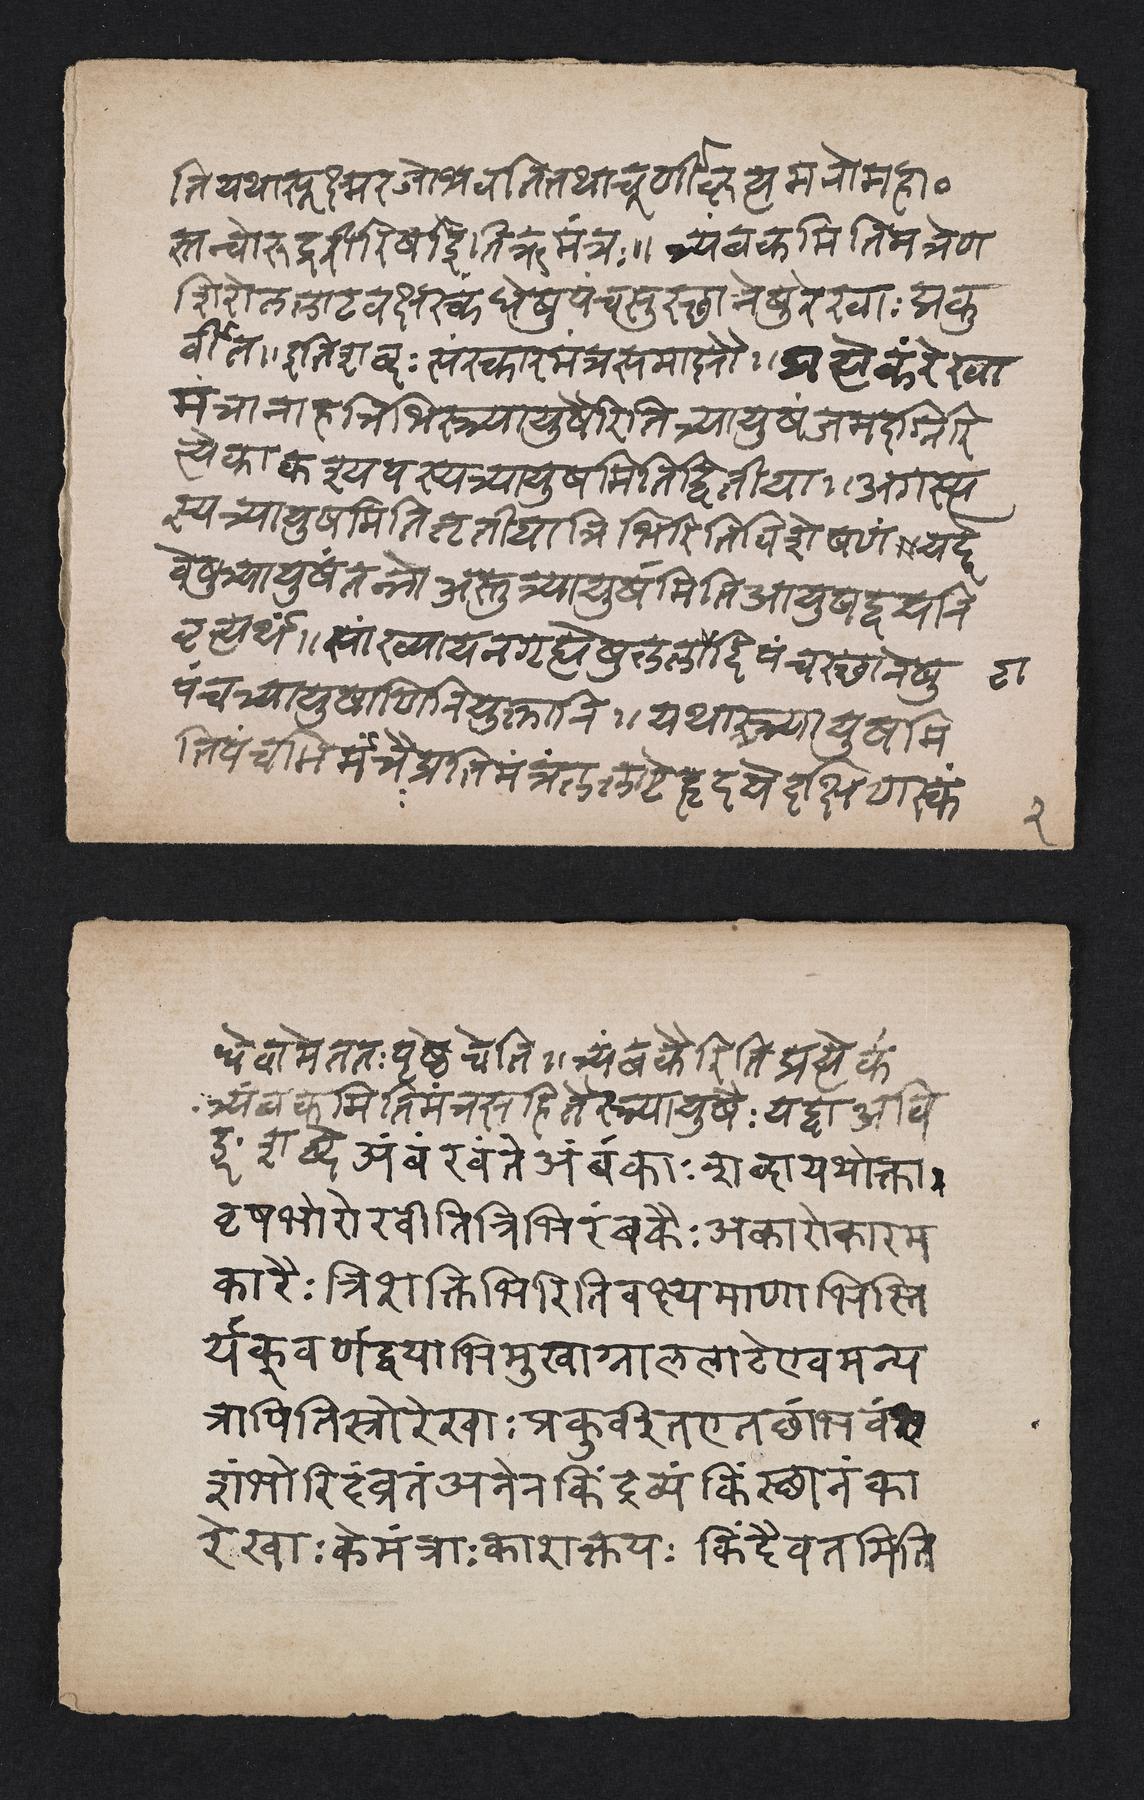 तियथासूक्ष्मरजोभवतितथाचूर्णीकृत्यमनोमहा०
स्तन्वोरुद्ररीरिषइितिऋमंत्रः॥ त्र्यंबकमितिमंत्रेण
शिरोललाटवक्षस्कंधेषुपंचसुस्छानेषुरेरवाः प्रकु
र्वीत॥इतिशब्दः संस्कारमंत्रसमाप्तौ॥प्रत्येकंरेखा
मंत्रानाहत्रिभिस्त्र्यायुषैरिति त्र्यायुषंजमदग्निरि
त्येकाकश्यपस्यत्र्यायुषमितिद्वितीया॥अगस्त्य
स्यत्र्यायुषमितितृतीयात्रिभिरितिविशेषणं॥यद्दे
वेषुत्र्यायुषंतन्नोअस्तुत्र्यायुषमितिआयुषद्वयनि
वृत्त्यर्थं॥सांख्यायनगृह्येषुललादिपंचस्छानेषु टा
पंचत्र्यायुषाणिनियुक्तानि॥यथात्र्यायुषमि
तिपंचभिर्मंत्रैःप्रतिमंत्रंललाटेहृदयेदक्षिणस्कं
२
धेवामेततःपृष्ठेचेति॥त्र्यंबकैरितिप्रत्येकं
त्र्यंबकमितिमंत्रसहितैस्त्र्यायुषैः यद्वा अवि
इ शब्दे अंबंरवंते अंबकाः शब्दायथोक्ता
वृषभोरोरवीतित्रिभिरंबकैः अकारोकारम
कारैः त्रिशक्तिभिरितिवक्ष्यमाणाभिस्ति
र्यक्कुवर्णद्वयाभिमुखाग्राललाटेएवमन्य
त्रापितिस्त्रोरेखाः प्रकुर्वीतएतछांभवं
शंभोरिदंव्रतंअनेनकिंद्रव्यं किंस्छानंका
रेखाः केमंत्राः काशक्तयः किंदैवतमिति